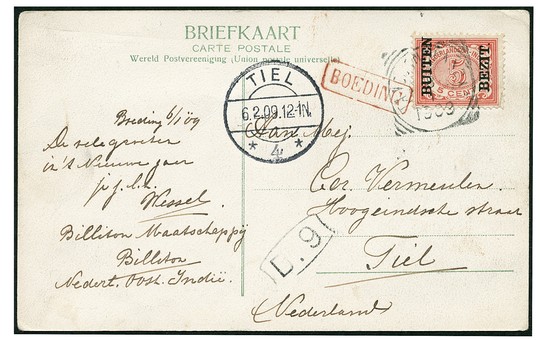 BRIEFKAART
CARTE POSTALE
Wereld Postvereeniging (Union postale universelle)
TIEL
6.2.09.12-1N.
* 4 *
BOEDING
BUITEN
BEZIT.
5
5 CENT
Boeding 6/1 09
De vele groeten
in 't Nieuwe jaar
Wessel
Billiton Maatschappij
Billiton
Nederl. Oost. Indië.
Aan Mej.
Cor. Vermeulen.
Hoogeindsche straat
Tiel
Nederland
D.9